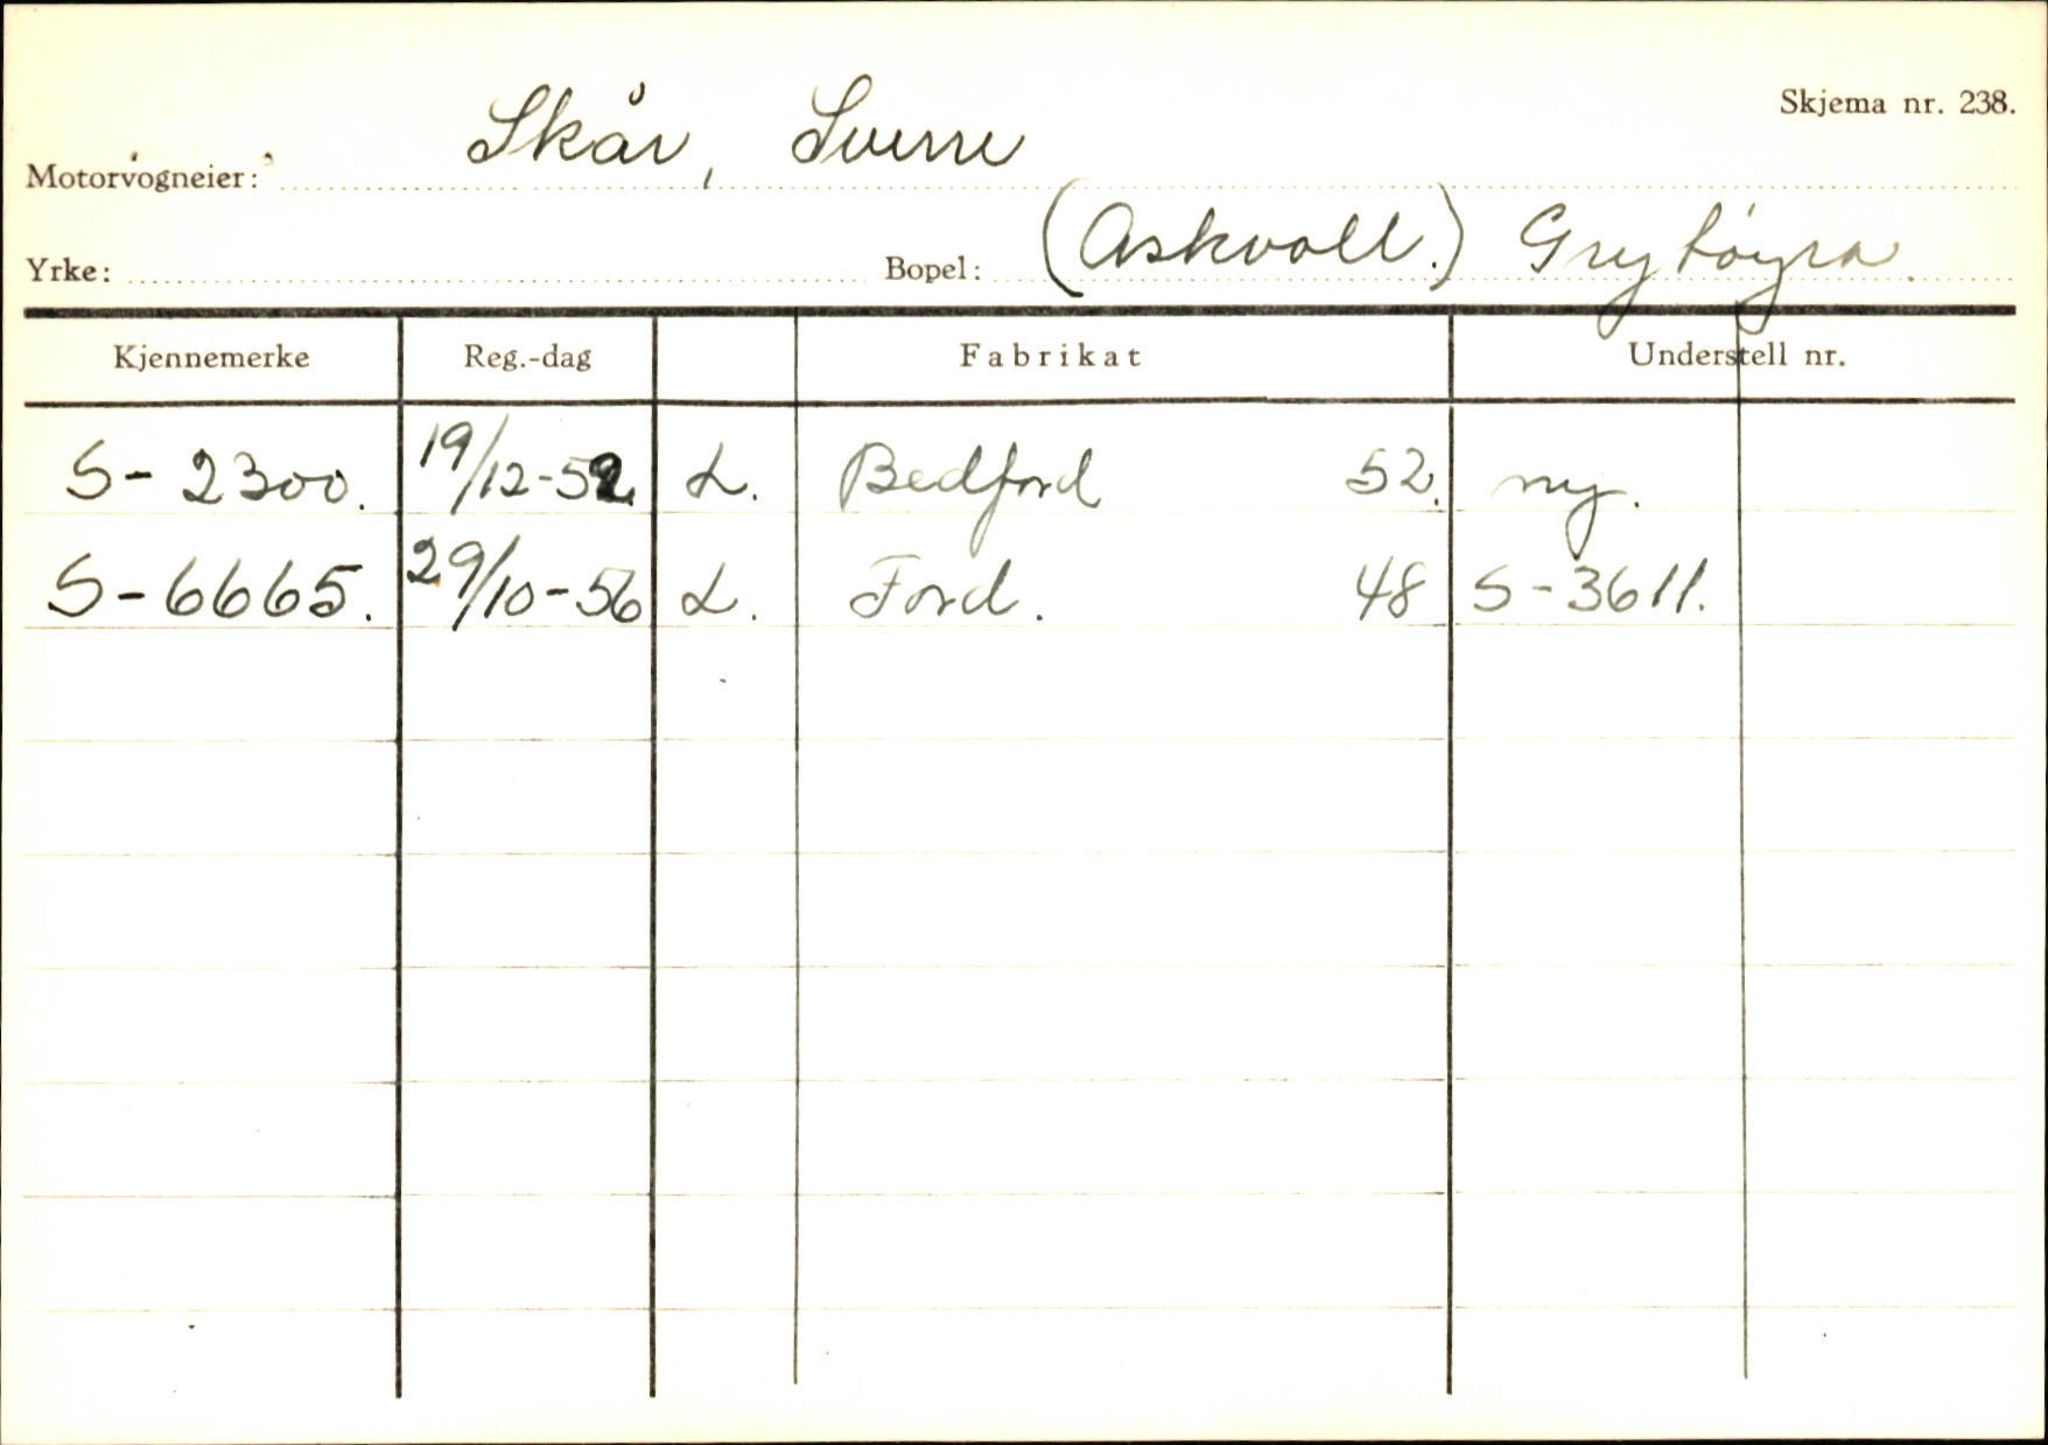 Skjema nr. 238.
Motorvogneier: Skår, Sverre
Yrke: Bopel: (Askvoll.) Grytøyra.
Kjennemerke Reg.-dag Fabrikat Understell nr.
S-2300. 19/12-52 L. Bedford 52. ny.
S-6665. 29/10-56 L. Ford. 48 S-3611.